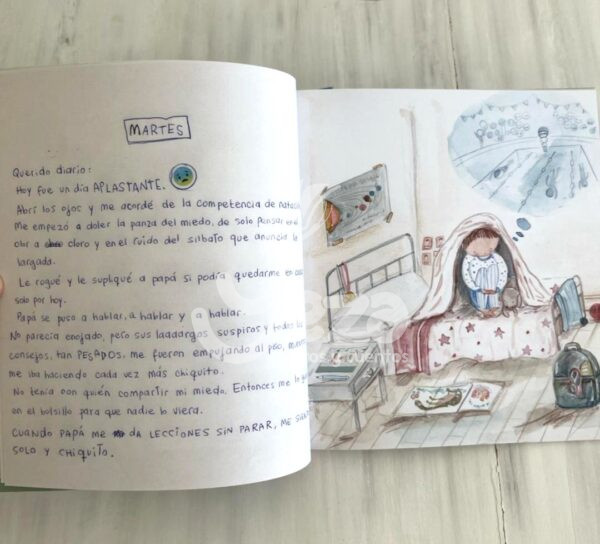 MARTES
Querido diario:
Hoy fue un día APLASTANTE.
Abrí los ojos y me acordé de la competencia de
Me empezó a doler la panza del miedo, de solo pensar en el
olor a cloro y en el ruido del silbato que anuncia la
largada.
Le rogué y le supliqué a papá si podía quedarme en casa
solo por hoy.
Papá se puso a hablar, a hablar y a hablar.
No parecía enojado, pero sus laaaargos suspiros y todos los
consejos, tan PESADOS, me fueron empujando al piso,
me iba haciendo cada vez más chiquito.
No tenía con quién compartir mi miedo. Entonces me lo
en el bolsillo para que nadie lo viera.
CUANDO PAPÁ ME DA LECCIONES SIN PARAR, ME
SOLO Y CHIQUITO.